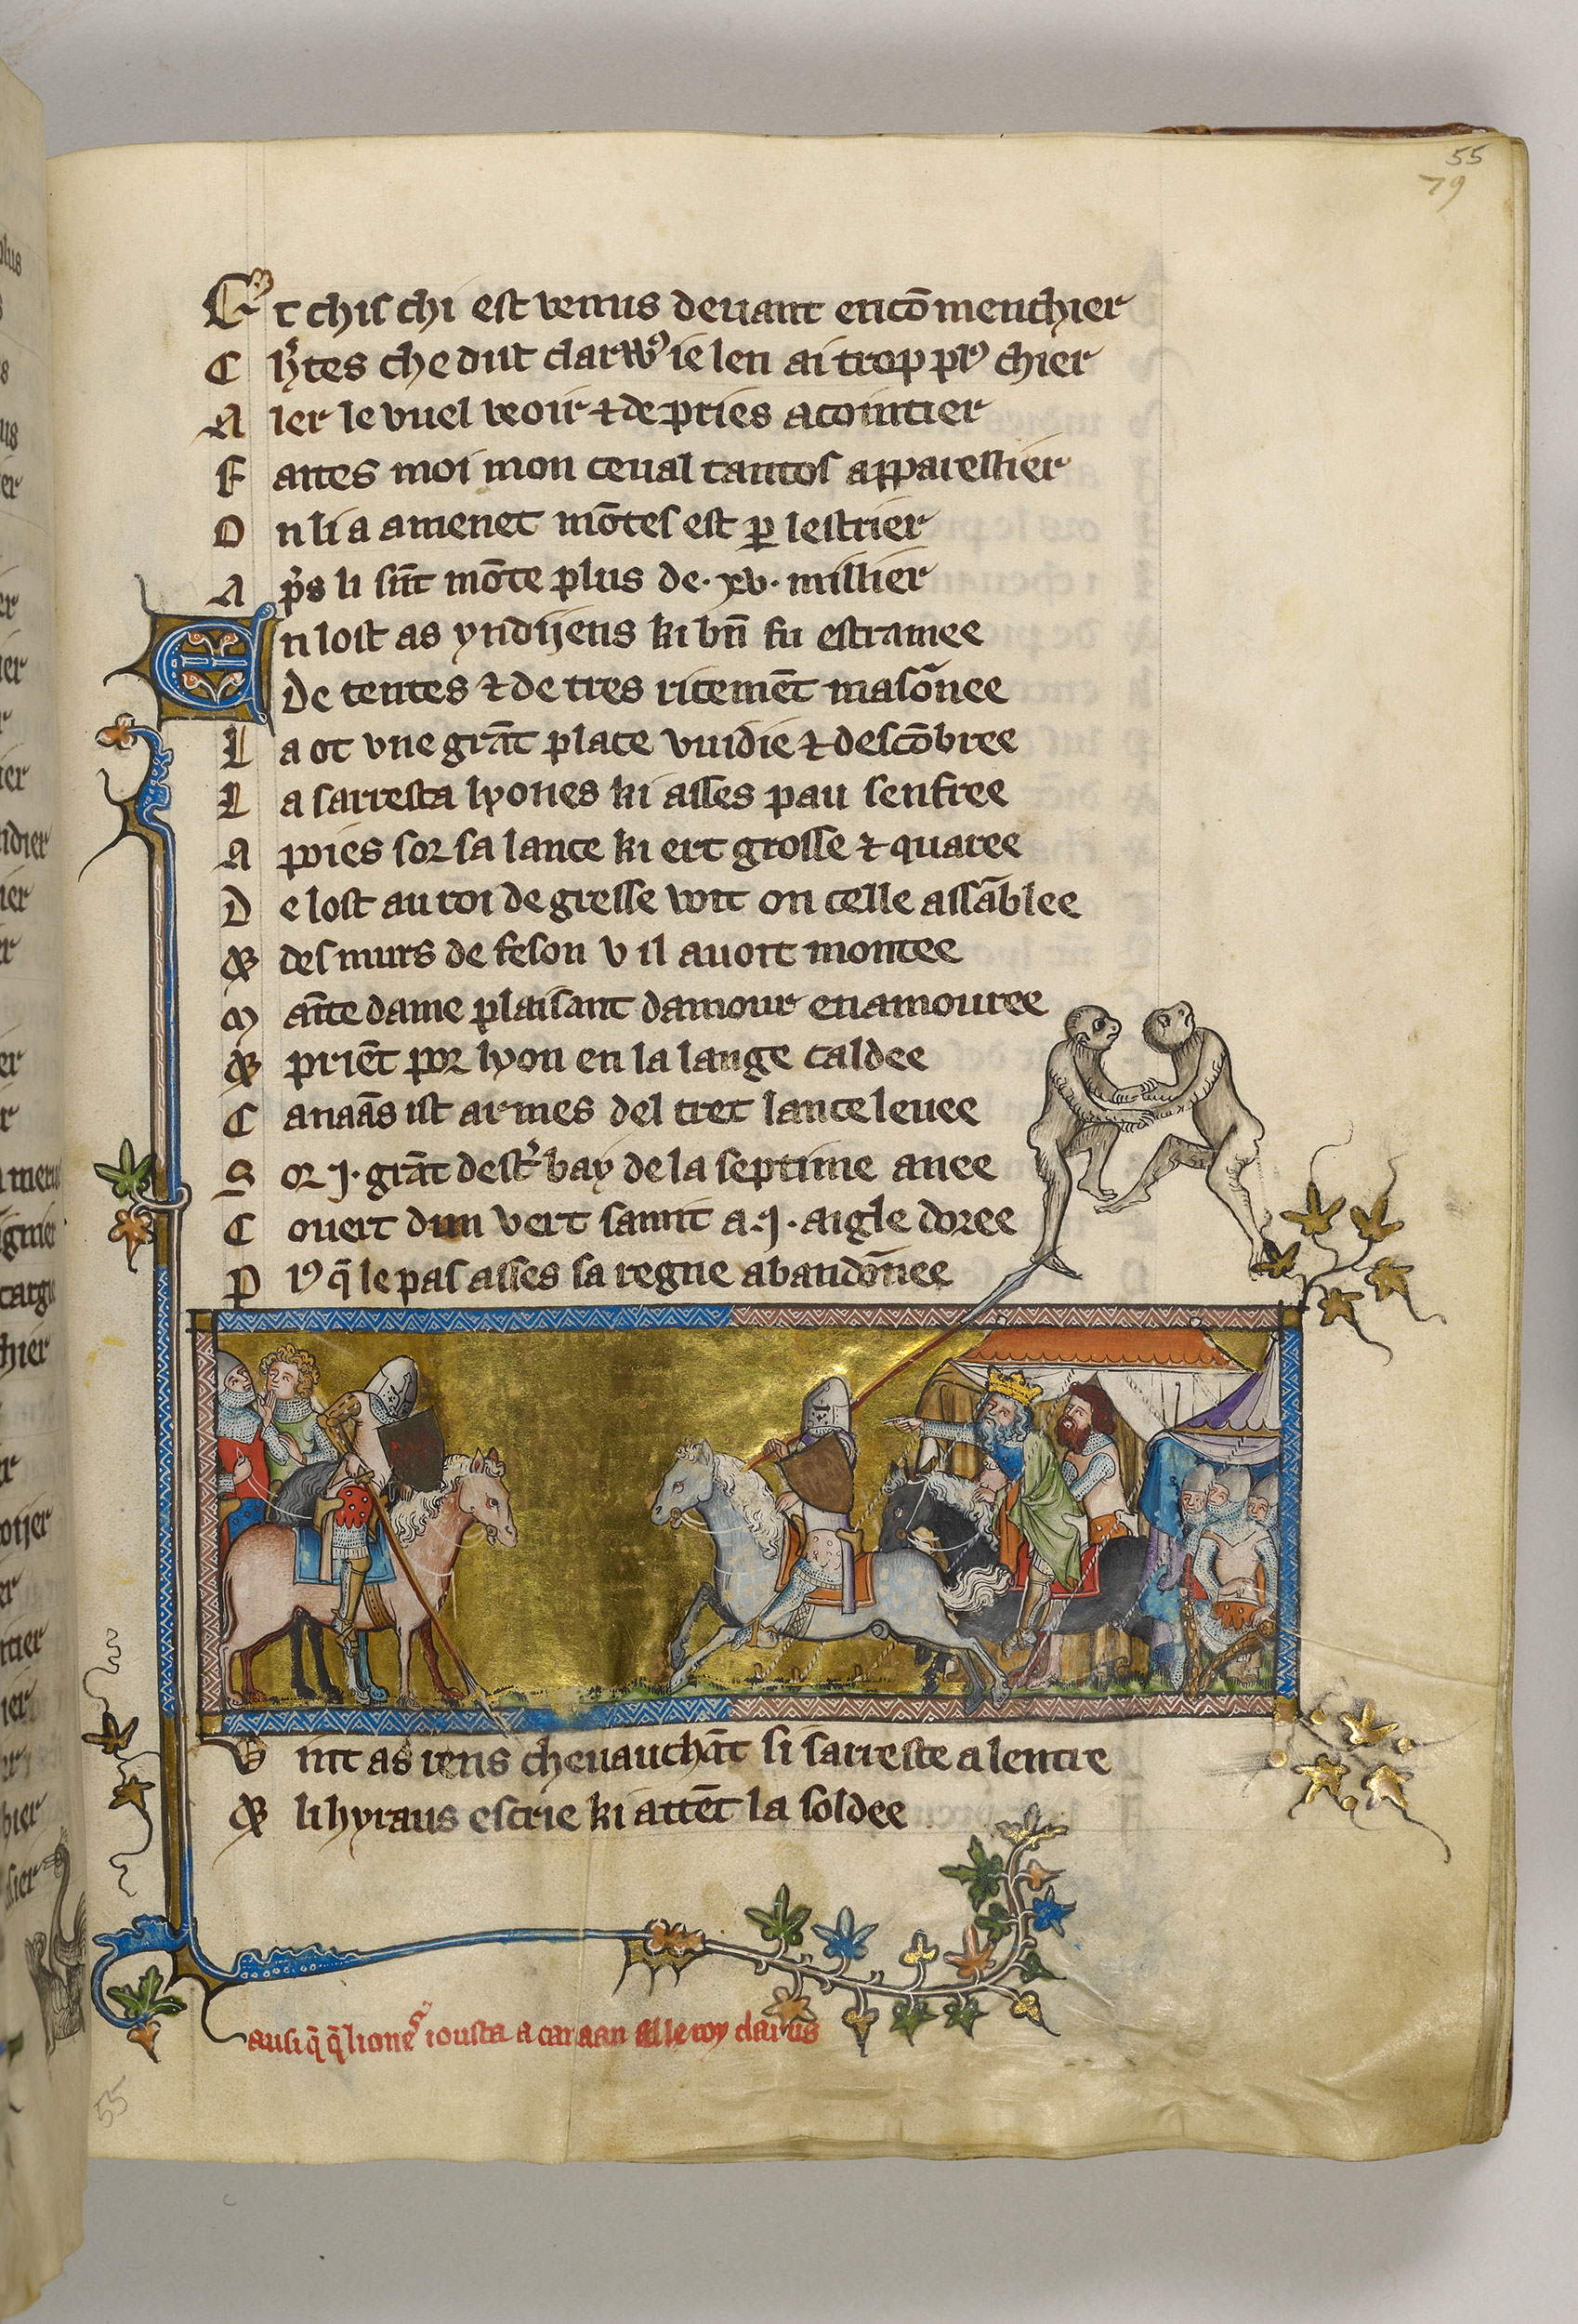 55
79
Et chis chi est venus deuant encōmenchier
C h'tes che dist clarw9 ie len ai trop pl9 chier
A ler le vuel veoir ⁊ de pries acointier
F aites moi mon ceual tantos apparellier
O n li a amenet mōtes est ꝑ lestrier
A pͬs li sūt mōte plus de .xv. millier
En lost as yndijens ki bn̄ fu estramee
De tentes ⁊ de tres ricemēt masōnee
L a ot vne grāt place vuidie ⁊ descōbree
L a sarresta lyones ki asses pau senfree
A poies sor sa lance ki ert grosse ⁊ quaree
D e lost au roi de gresse voit on celle assāblee
⁊ des murs de feson v il auoit montee
M āte dame plaisant damour enamouree
⁊ priēt por lyon en la lange caldee
C anaās ist armes del tret lance leuee
S or .j. grāt dest' bay de la septime anee
C ouert dun vert samit a .j. aigle doree
P l9 q̄ le pas asses sa regne abandōnee
V int as rens cheuauchāt si sarreste a lentre
⁊ li hyraus escrie ki attēt la soldee
ausi q̄ q̄ lione iousta a canaan al le roy dairus
55